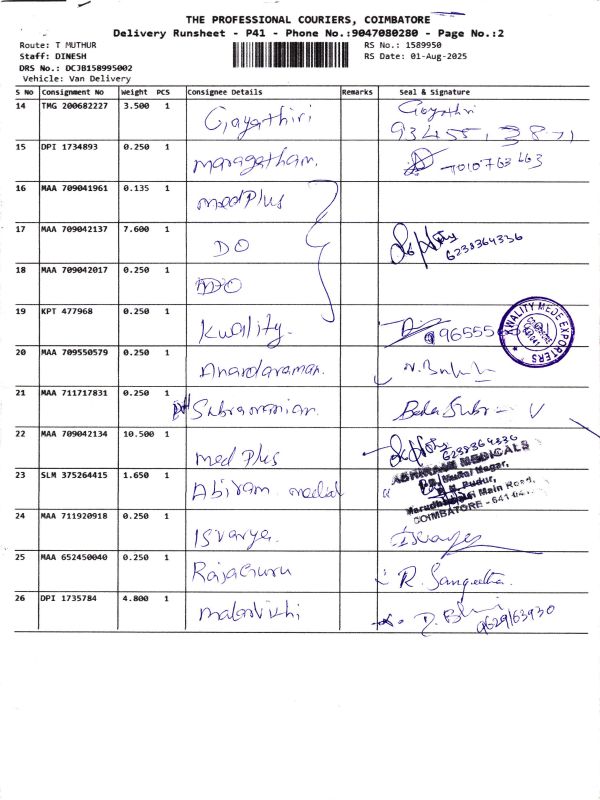 THE PROFESSIONAL COURIERS, COIMBATORE
Delivery Runsheet - P41 - Phone No.:9047080280 - Page No.:2
Route: T MUTHUR RS No.: 1589950
Staff: DINESH RS Date: 01-Aug-2025
DRS No.: DCJB158995002
Vehicle: Van Delivery
S No Consignment No Weight PCS Consignee Details Remarks Seal & Signature
14 TMG 200682227 3.500 1 Gayathiri Gayathri
15 DPI 1734893 0.250 1 maragatham.
16 MAA 709041961 0.135 1 medPlus
17 MAA 709042137 7.600 1 DO 6238364336
18 MAA 709042017 0.250 1 DO
19 KPT 477968 0.250 1 Kwality. 96555 KWALITY MEDE EXPORTERS
20 MAA 709550579 0.250 1 Anandaraman.
21 MAA 711717831 0.250 1 Subramanian
22 MAA 709042134 10.500 1 med Plus 6238364336
23 SLM 375264415 1.650 1 Abiram medical
MEDICALS
Nagar,
Pudur,
Main Road,
COIMBATORE - 641
24 MAA 711920918 0.250 1 Isvarya.
25 MAA 652450040 0.250 1 Rajaguru R. Sangeetha.
26 DPI 1735784 4.800 1 9629163930